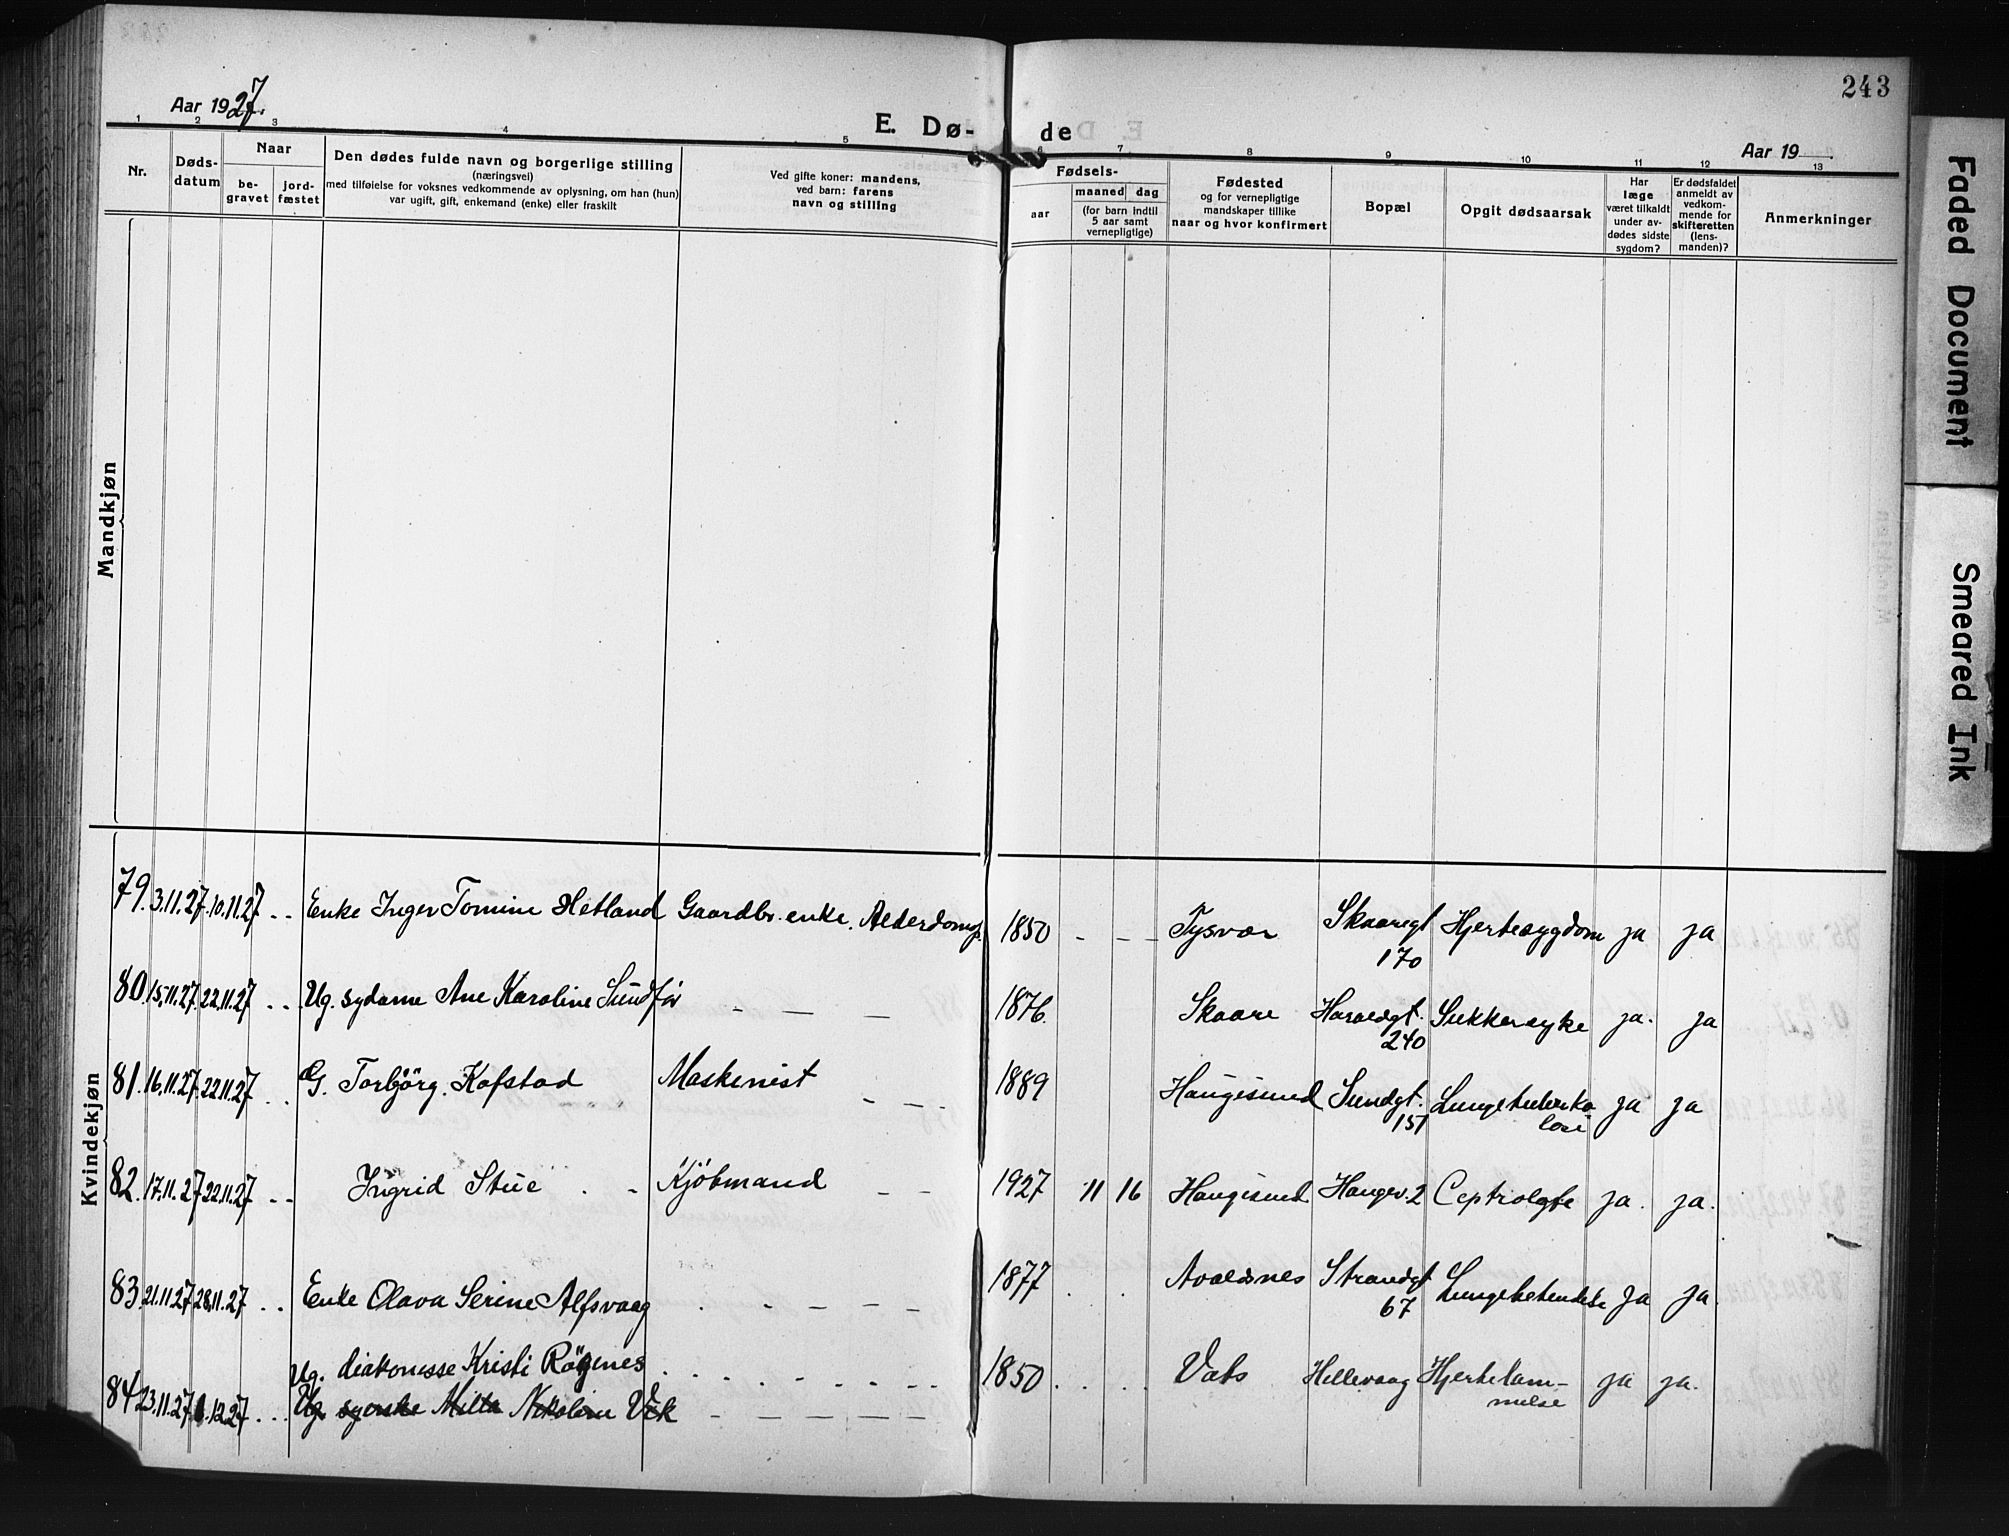 243
Aar 1927.
E. Dø- de
Aar 19
1 2 3 4 5 6 7 8 9 10 11 12 13
Nr.
Døds-
datum
Naar
be-
gravet
jord-
fæstet
Den dødes fulde navn og borgerlige stilling
(næringsvei)
med tilføielse for voksnes vedkommende av oplysning, om han (hun)
var ugift, gift, enkemand (enke) eller fraskilt
Ved gifte koner: mandens,
ved barn: farens
navn og stilling
Fødsels-
aar
maaned dag
(for barn indtil
5 aar samt
vernepligtige)
Fødested
og for vernepligtige
mandskaper tillike
naar og hvor konfirmert
Bopæl
Opgit dødsaarsak
Har
læge
været tilkaldt
under av-
dødes sidste
sygdom?
Er dødsfaldet
anmeldt av
vedkom-
mende for
skifteretten
(lens-
manden)?
Anmerkninger
Mandkjøn
Kvindekjøn
79. 3.11.27. 10.11.27 - - Enke Inger Tomine Hetland Gaardbr. enke. Alderdomsp. 1850 - - - Tysvær Skaaregt 170 Hjertesygdom ja ja
80. 15.11.27. 22.11.27 . . Ug. sydame Ane Karoline Sundfør - - - 1876. Skaare Haraldgt. 240 Sukkersyke ja. ja
81. 16.11.27. 22.11.27 . . G. Torbjörg. Kofstad Maskinist - - - 1889 Haugesund Sundgt. 151 Lungetuberko lose ja ja
82. 17.11.27 22.11.27 - - Ingrid Stue . - Kjöbmand - - 1927 11 16 Haugesund Haugev. 2 ja. ja.
83. 21.11.27 28.11.27 . . Enke Olava Serine Alfsvaag . - - - - 1877 . . Avaldsnes Strandgt 67 Lungebetendelse ja ja.
Ug. diakonisse Kristi Røgenes . . . . . 1850 . . . Vats Hellevaag Hjertelam- melse ja ja.
84 23.11.27. 1.12.27 . . . Ug. syerske Milta Nikoline Vik - - - - -
Faded Document
Smeared Ink